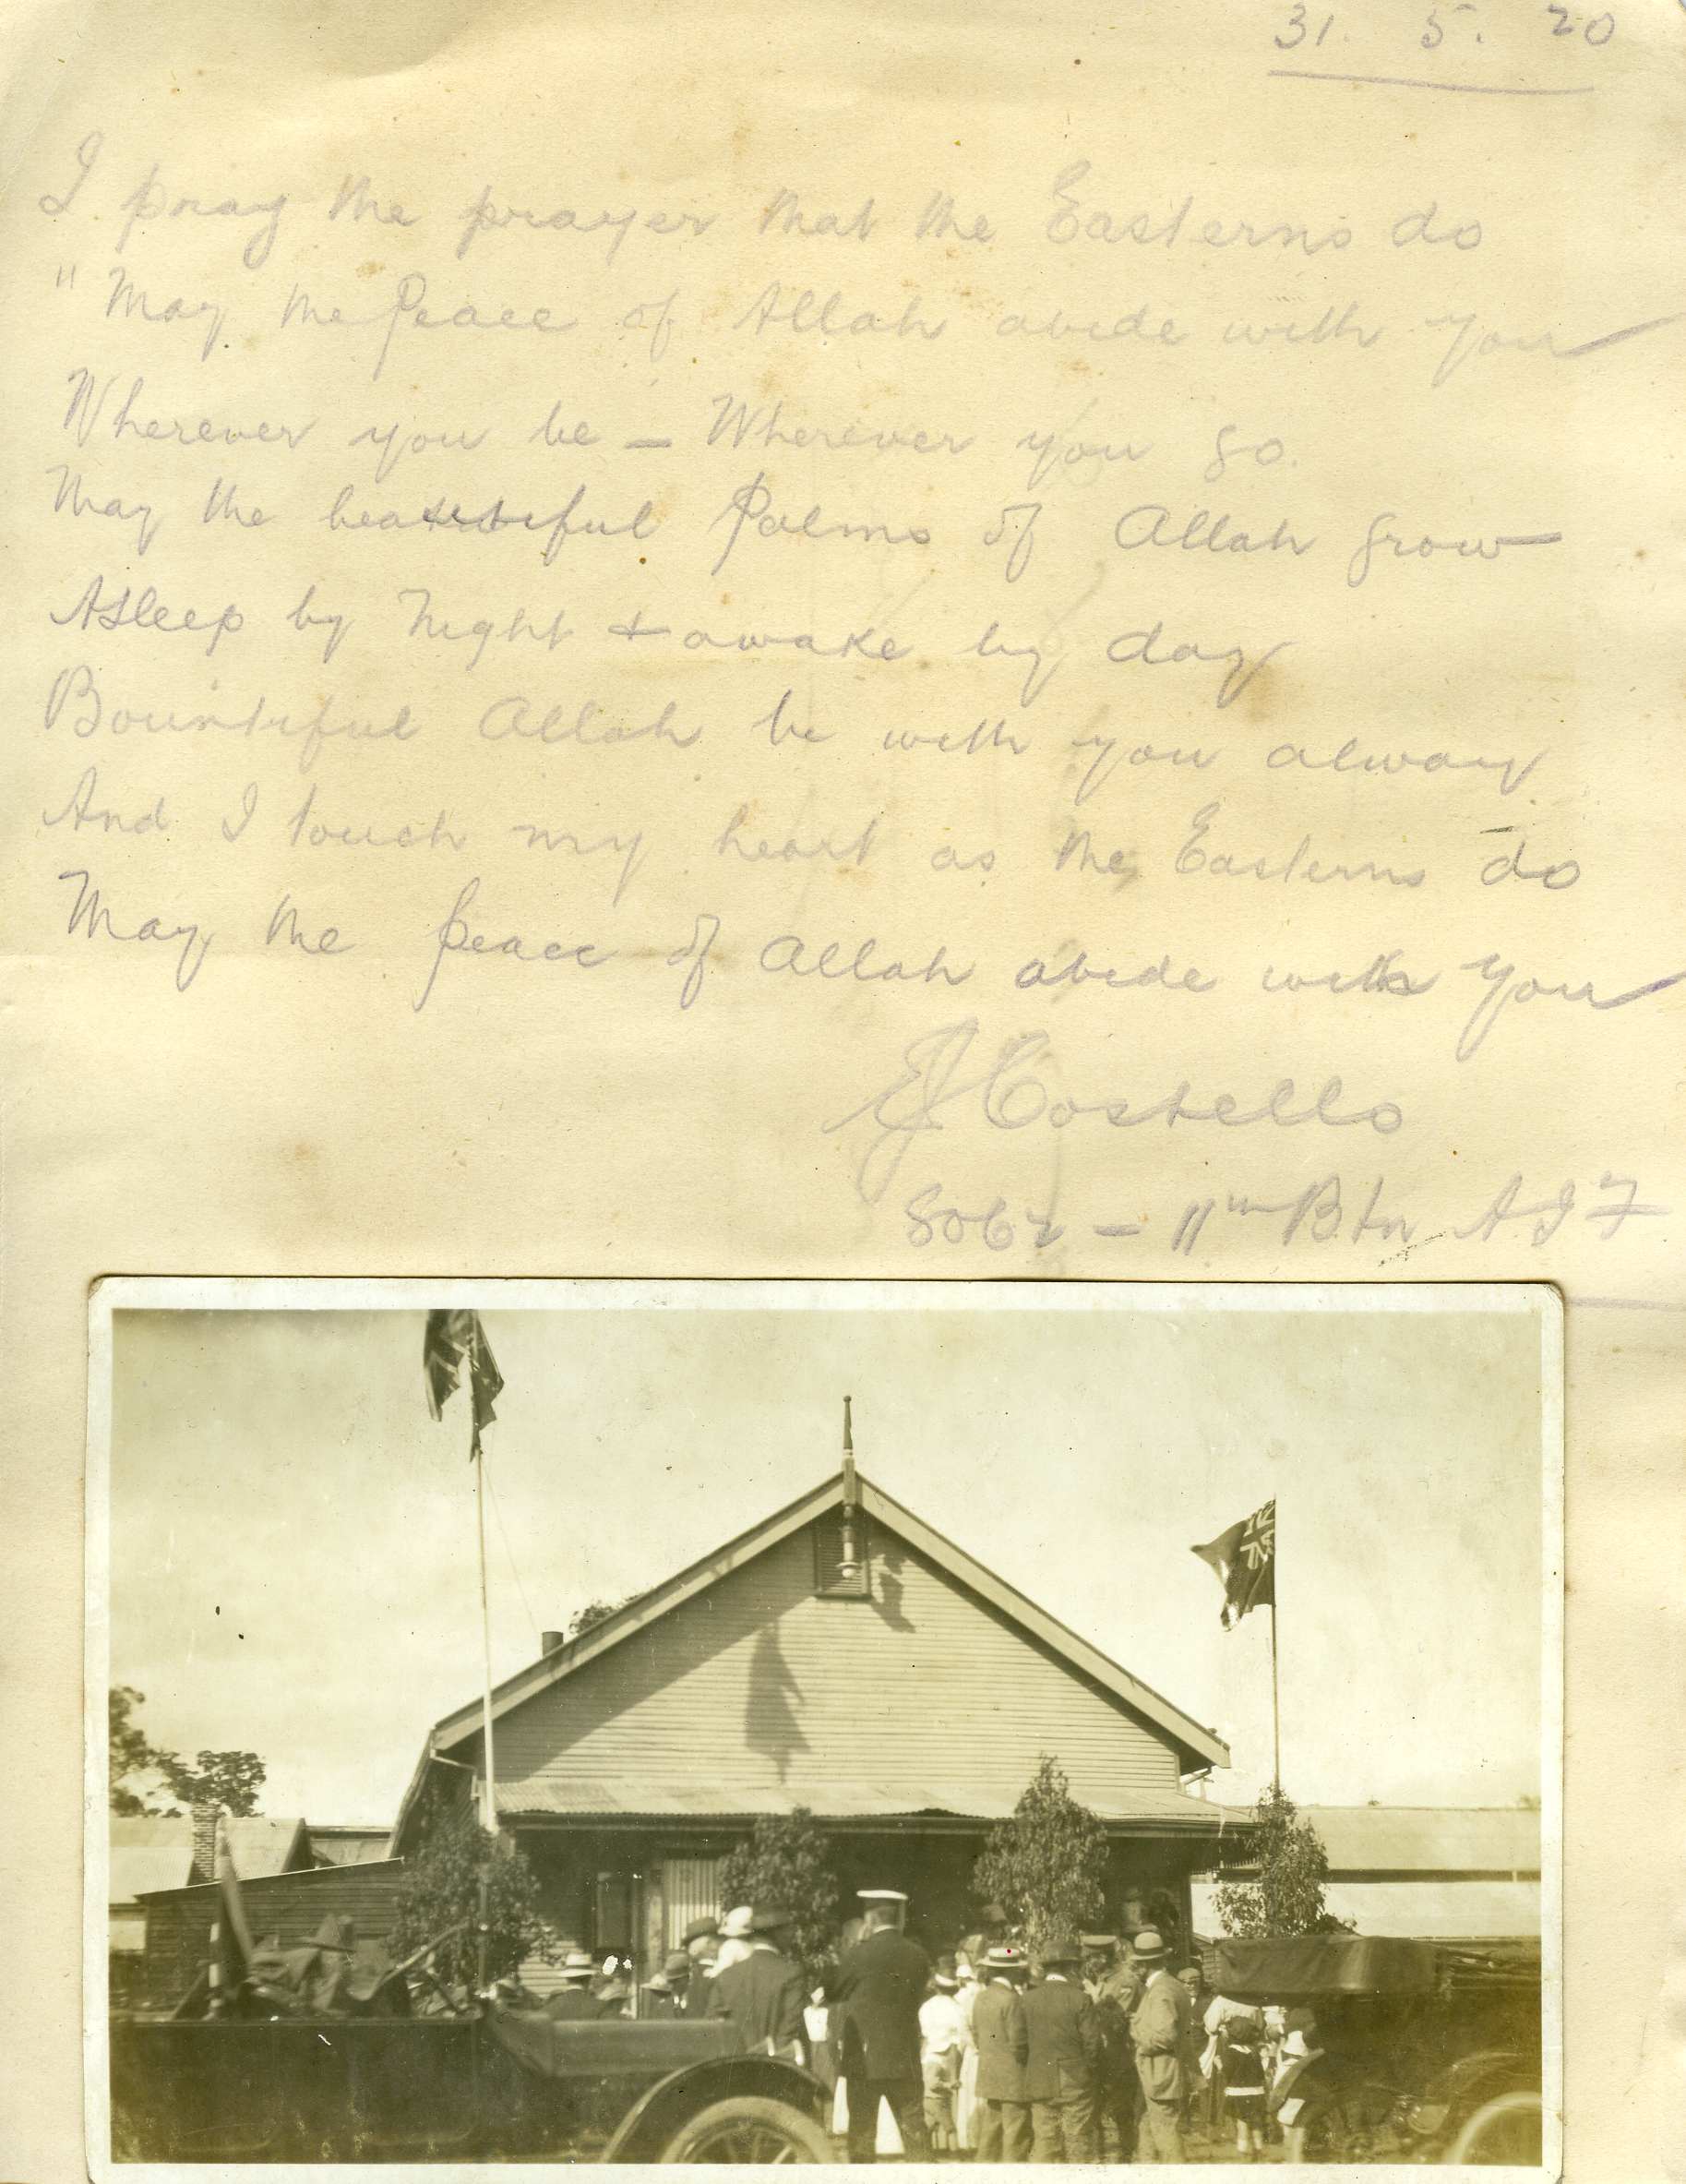 31. 5. 20
I pray the prayer that the Easterns do
" May the Peace of Allah abide with you
Wherever you be – Wherever you go
May the beautiful Palms of Allah grow
Asleep by Night + awake by day
Bountiful Allah be with you alway
And I touch my heart as the Easterns do
May the Peace of Allah abide with you
EJ Costello
11th Btn A I F